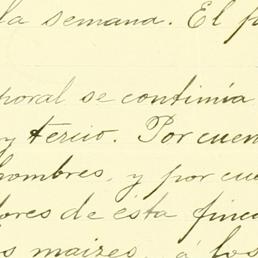 la semana. El p
poral se continúa
y terció. Por cuen
hombres, y por cue
dores de ésta finca
s maizes, á los